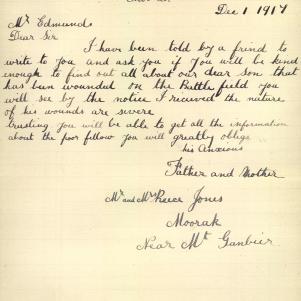 Dec 1 1917
Mr Edmunds
Dear Sir
I have been told by a friend to
write to you and ask you if you will be kind
enough to find out all about our dear son that
has been wounded on the Battle field you
will see by the notice I received the nature
of his wounds are severe
trusting you will be able to get all the information
about the poor fellow you will greatly oblige
his Anxious
Father and Mother
Mr and Mrs Reece Jones
Moorak
Near Mt Gambier